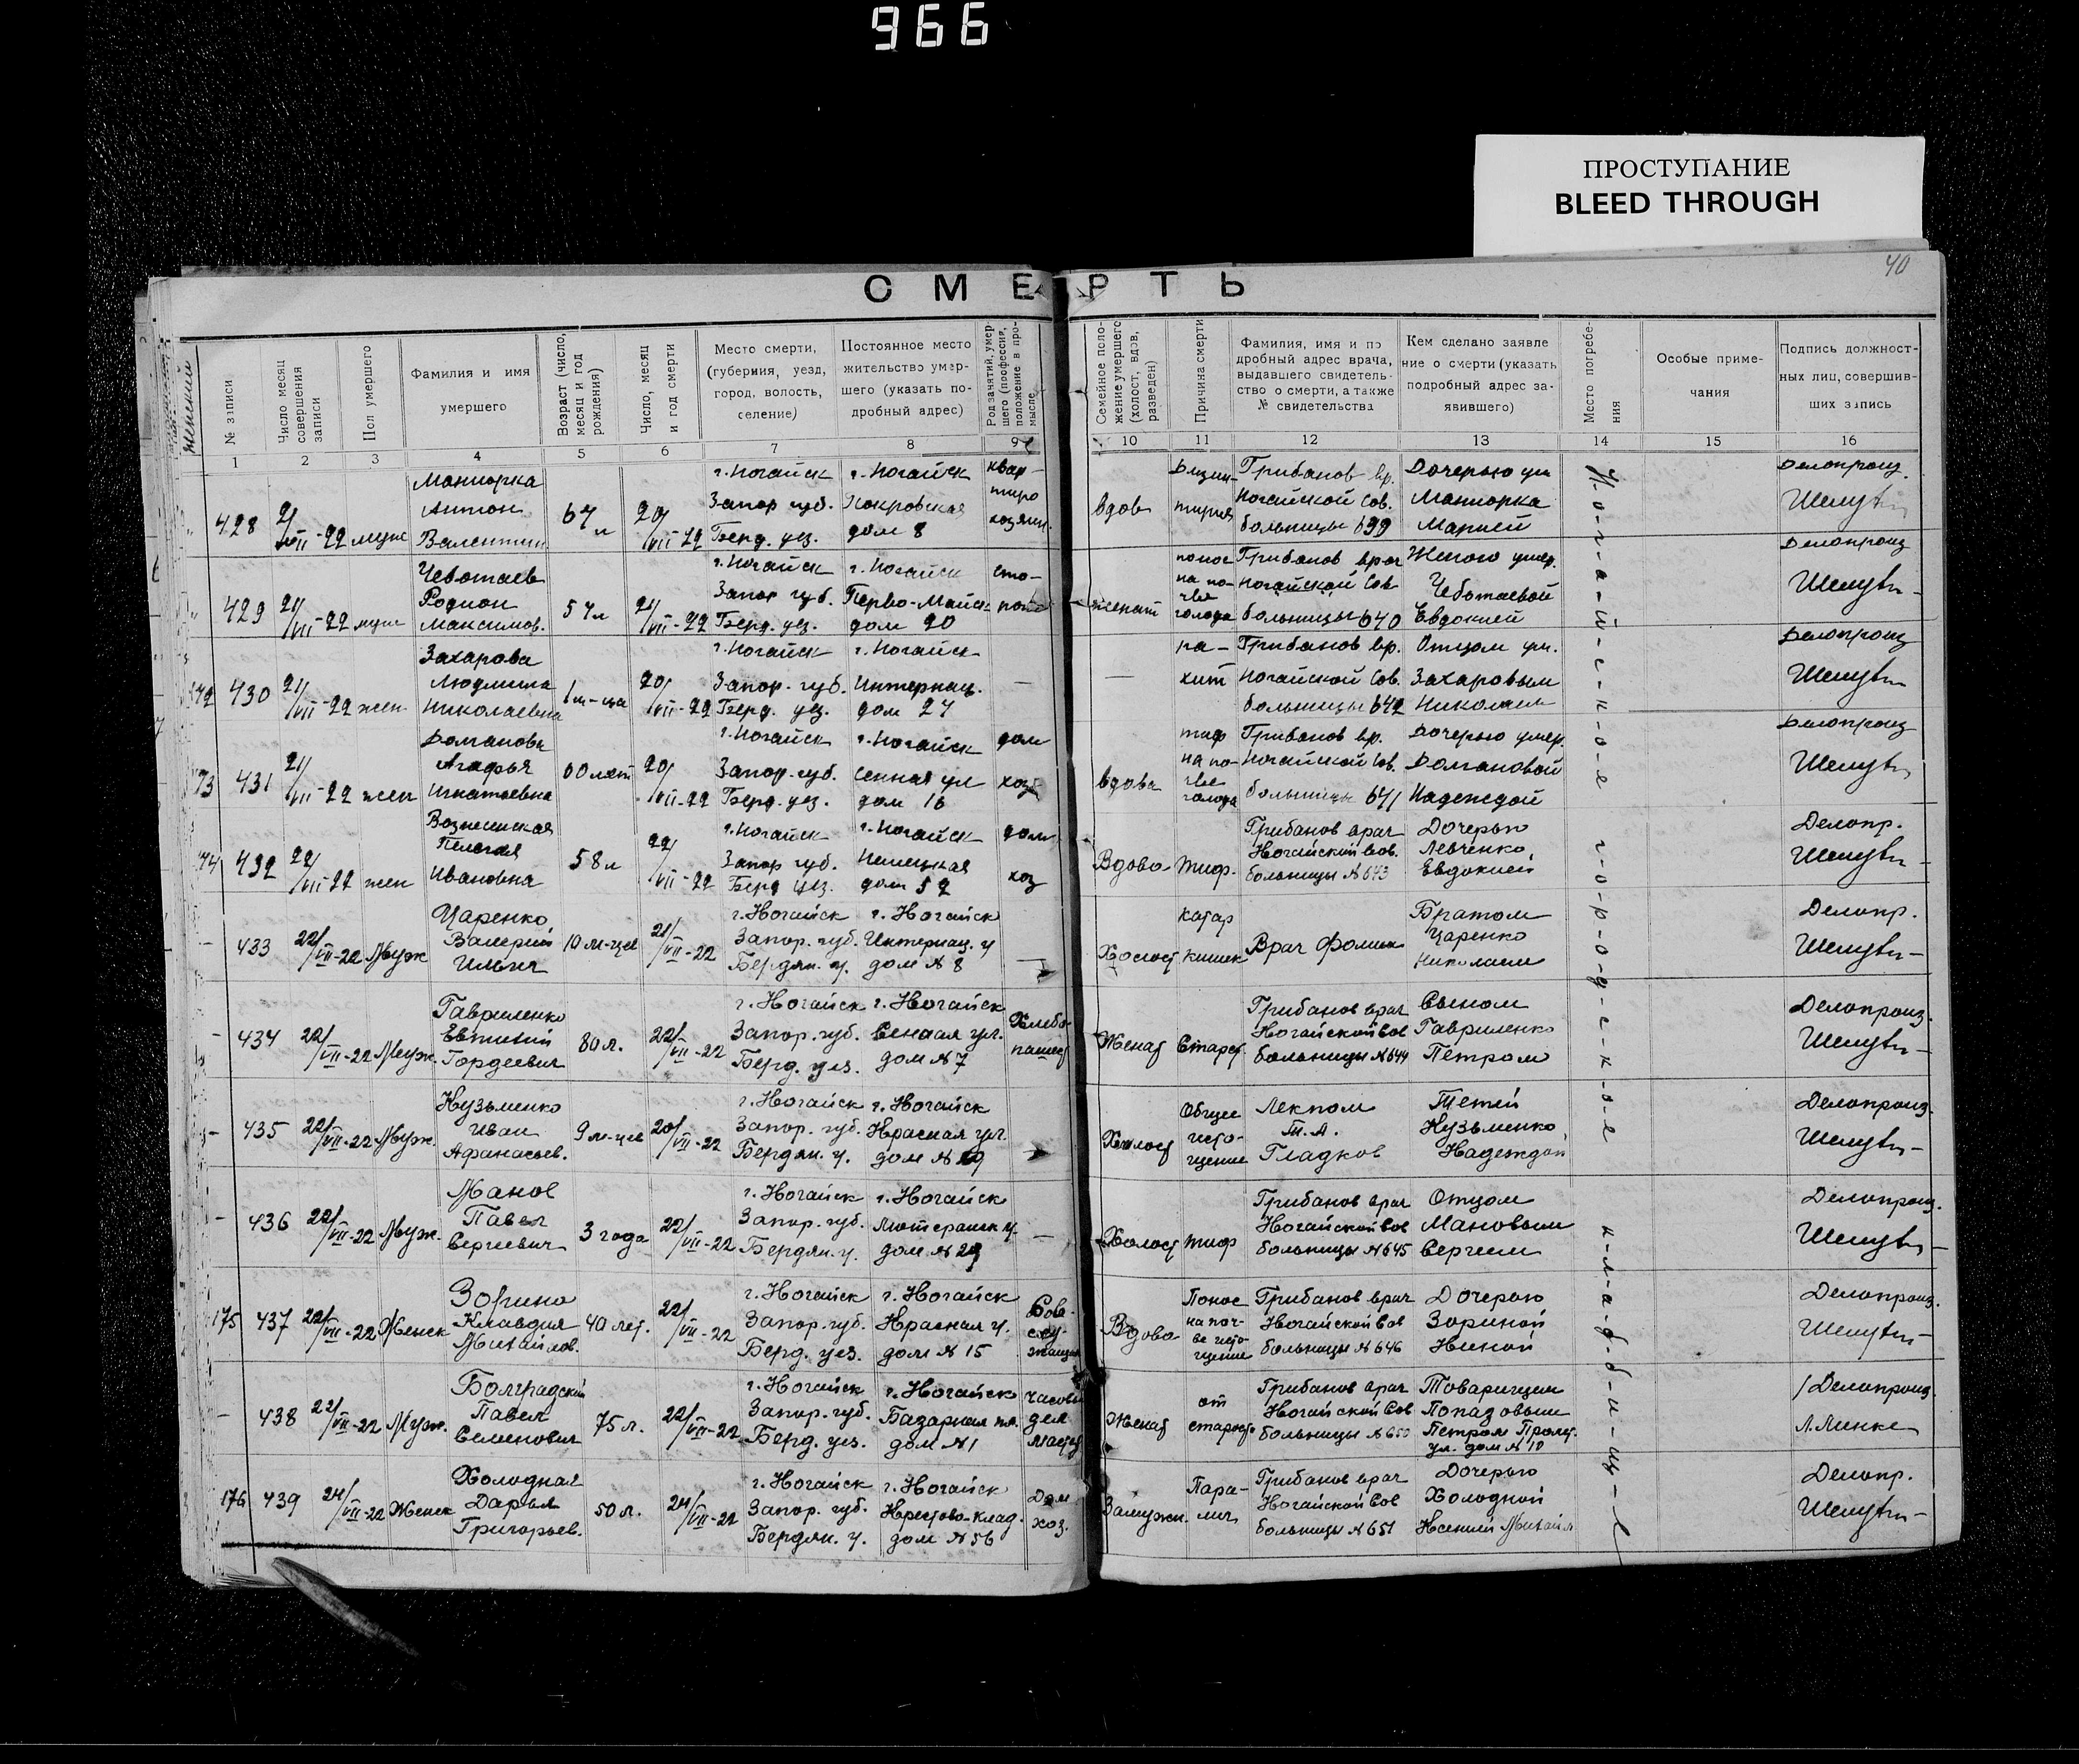 966
ПРОСТУПАНИЕ
BLEED THROUGH
40
СМЕРТЬ
женский
№ записи
Число месяц совершения записи
Пол умершего
Фамилия и имя умершего
Возраст (число, месяц и год рождения)
Число, месяц и год смерти
Место смерти, (губерния, уезд, город, волость, селение)
Постоянное место жительство умершего (указать подробный адрес)
Род занятий, умершего (профессия, положение в промысле
Семейное положение умершего (холост, вдов, разведен)
Причина смерти
Фамилия, имя и подробный адрес врача, выдавшего свидетельство о смерти, а также № свидетельства
Кем сделано заявление о смерти (указать подробный адрес заявившего)
Место погребения
Особые примечания
Подпись должностных лиц, совершивших запись
1 2 3 4 5 6 7 8 9 10 11 12 13 14 15 16
428 21/VII-22 муж
Антон
Валентин.
67 л
20/VII-22
г. Ногайск
Запор губ.
Берд. уез.
г. Ногайск
Покровская
дом 8
квар-
тиро
хозяин.
вдов
Грибанов вр.
Ногайской Сов.
больницы 639
Дочерью ум
Марией
Делопроиз.
429 21/VII-22 муж
Чеботаев
Родион
Максимов.
57 л
21/VII-22
г. Ногайск
Запор губ.
Берд. уез.
г. Ногайск
Перво-Майск
дом 20
женат
понос
на по-
чве
голода
Грибанов врач
Ногайской Сов.
больницы 640
Женою умер.
Чеботаевой
Евдокией
Делопроиз
172 430 21/VII-22 жен
Захарова
Людмила
Николаевна
1 м-ца
20/VII-22
г. Ногайск
Запор. губ.
Берд. уз.
г. Ногайск
Интернац.
дом 27
—
—
ра-
хит
Грибанов вр.
Ногайской Сов.
больницы 642
Отцом ум.
Захаровым
Николаем
Делопроиз
173 431 21/VII-22 жен
Долманова
Агафья
Игнатьевна
60 лет
20/VII-22
г. Ногайск
Запор. губ.
Берд. уез.
г. Ногайск
Сенная ул
дом 16
дом
хоз
вдова
тиф
на по-
чве
голода
Грибанов вр.
Ногайской Сов.
больницы 641
Дочерью умер.
Долмановой
Надеждой
Делопроиз
174 432 22/VII-22 жен
Вознесенская
Пелагея
Ивановна
58 л
22/VII-22
г. Ногайск
Запор губ.
Берд уез.
г. Ногайск
Немецкая
дом 52
дом
хоз
Вдова
Тиф.
Грибанов врач
Ногайской Сов.
больницы №643
Дочерью
Левченко
Евдокией
Делопр.
- 433 22/VII-22 Муж
Царенко
Валерий
Ильич
10 м-цев
21/VII-22
г. Ногайск
Запор. губ.
Бердян. у.
г. Ногайск
Интернац. у
дом № 8
—
Холост
катар
кишек
Врач Фомин
Братом
Царенко
Николаем
Делопр.
- 434 22/VII-22 Муж.
Гавриленко
Евтихий
Гордеевич
80 л.
22/VII-22
г. Ногайск
Запор. губ.
Берд. уез.
г. Ногайск
Сенная ул.
дом № 7
Хлебо-
пашец
Женат
Старост.
Грибанов врач
Ногайской Сов
больницы №644
Сыном
Гавриленко
Петром
Делопроиз.
- 435 22/VII-22 Муж.
Кузьменко
Иван
Афанасьев.
9 м-цев
20/VII-22
г. Ногайск
Запор. губ.
Бердян. у.
г. Ногайск
Красная ул.
Холост
Общее
исто-
щение
Лекпом
Т.А.
Гладков
Тетей
Кузьменко
Надеждой
Делопроиз.
- 436 22/VII-22 Муж.
Манов
Павел
Сергеевич
3 года
22/VII-22
г. Ногайск
Запор. губ.
Бердян. у.
г. Ногайск
Лютеранск у.
дом № 29
—
Холост
тиф
Грибанов врач
Ногайской Сов
больницы №645
Отцом
Мановым
Сергеем
Делопроиз.
175 437 22/VII-22 Женск
Зорина
Клавдия
Михайлов.
40 лет.
22/VII-22
г. Ногайск
Запор. губ.
Берд. уез.
г. Ногайск
Красная у.
дом № 15
Сов-
слу-
жащая
Вдова
Понос
на поч-
ве исто-
щение
Грибанов врач
Ногайской Сов
больницы №646
Дочерью
Зориной
Ниной
Делопроиз.
- 438 22/VII-22 Муж.
Болградский
Павел
Семенович
75 л.
22/VII-22
г. Ногайск
Запор. губ.
Берд. уез.
г. Ногайск
Базарная пл.
дом № 1
Часовых
дел
мастер
Женат
от
старост.
Грибанов врач
Ногайской Сов
больницы №650
Товарищем
Попазовым
Петром Пролет.
ул. дом № 10
Делопроиз.
176 439 24/VII-22 Женск
Холодная
Дарья
Григорьев.
50 л.
24/VII-22
г. Ногайск
Запор. губ.
Бердян. у.
г. Ногайск
Крестово-Клад.
дом № 56
Дом.
хоз.
Замужн.
Пара-
лич
Грибанов врач
Ногайской Сов
больницы №651
Дочерью
Холодной
Ксенией Михайл
Делопр.
Ногайское городское кладбище